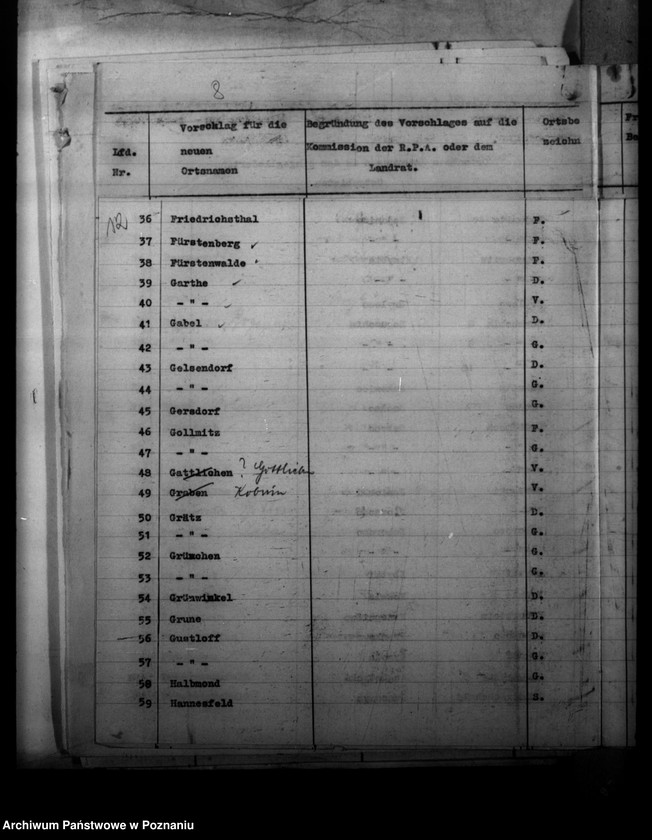 8
Lfd. Nr. Vorschlag für die neuen Ortsnamen Begründung des Vorschlages auf die Kommission der R.P.A. oder dem Landrat. Ortsbe neichn
12 36 Friedrichsthal F.
37 Fürstenberg F.
38 Fürstenwalde F.
39 Garthe D.
40 - " - V.
41 Gabel D.
42 - " - G.
43 Gelsendorf D.
44 - " - G.
45 Gersdorf G.
46 Gollmitz F.
47 - " - G.
48 Gattlichen ? V.
49 Graben V.
50 Grätz D.
51 - " - G.
52 Grünchen G.
53 - " - G.
54 Grünwinkel D.
55 Grune D.
56 Gustloff D.
57 - " - G.
58 Halbmond G.
59 Hannesfeld S.
Archiwum Państwowe w Poznaniu